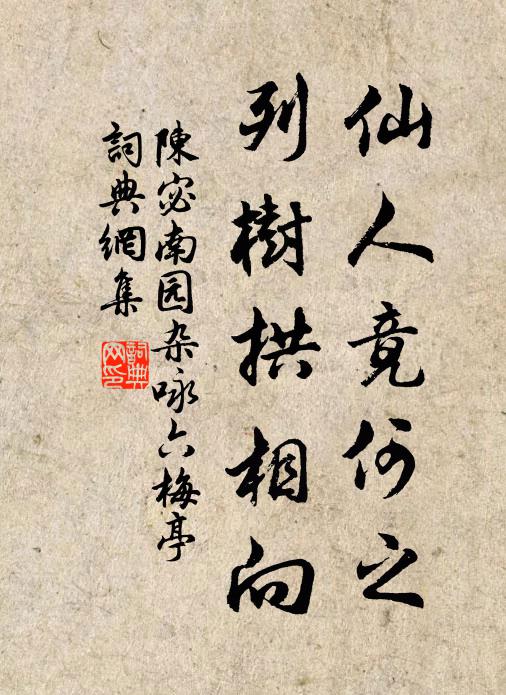 仙人竟何之
列樹拱相向
陳宓南园杂咏六梅亭
詞典網集
詞典
网印